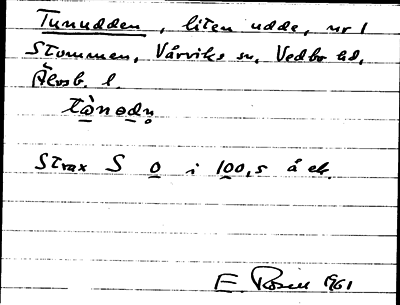 Tunudden, liten udde, nr 1
Stommen, Vårviks sn, Vedbo hd,
Älvsb. l.
Strax S 0 i 100,5 å ek.
E. Rosell 1961